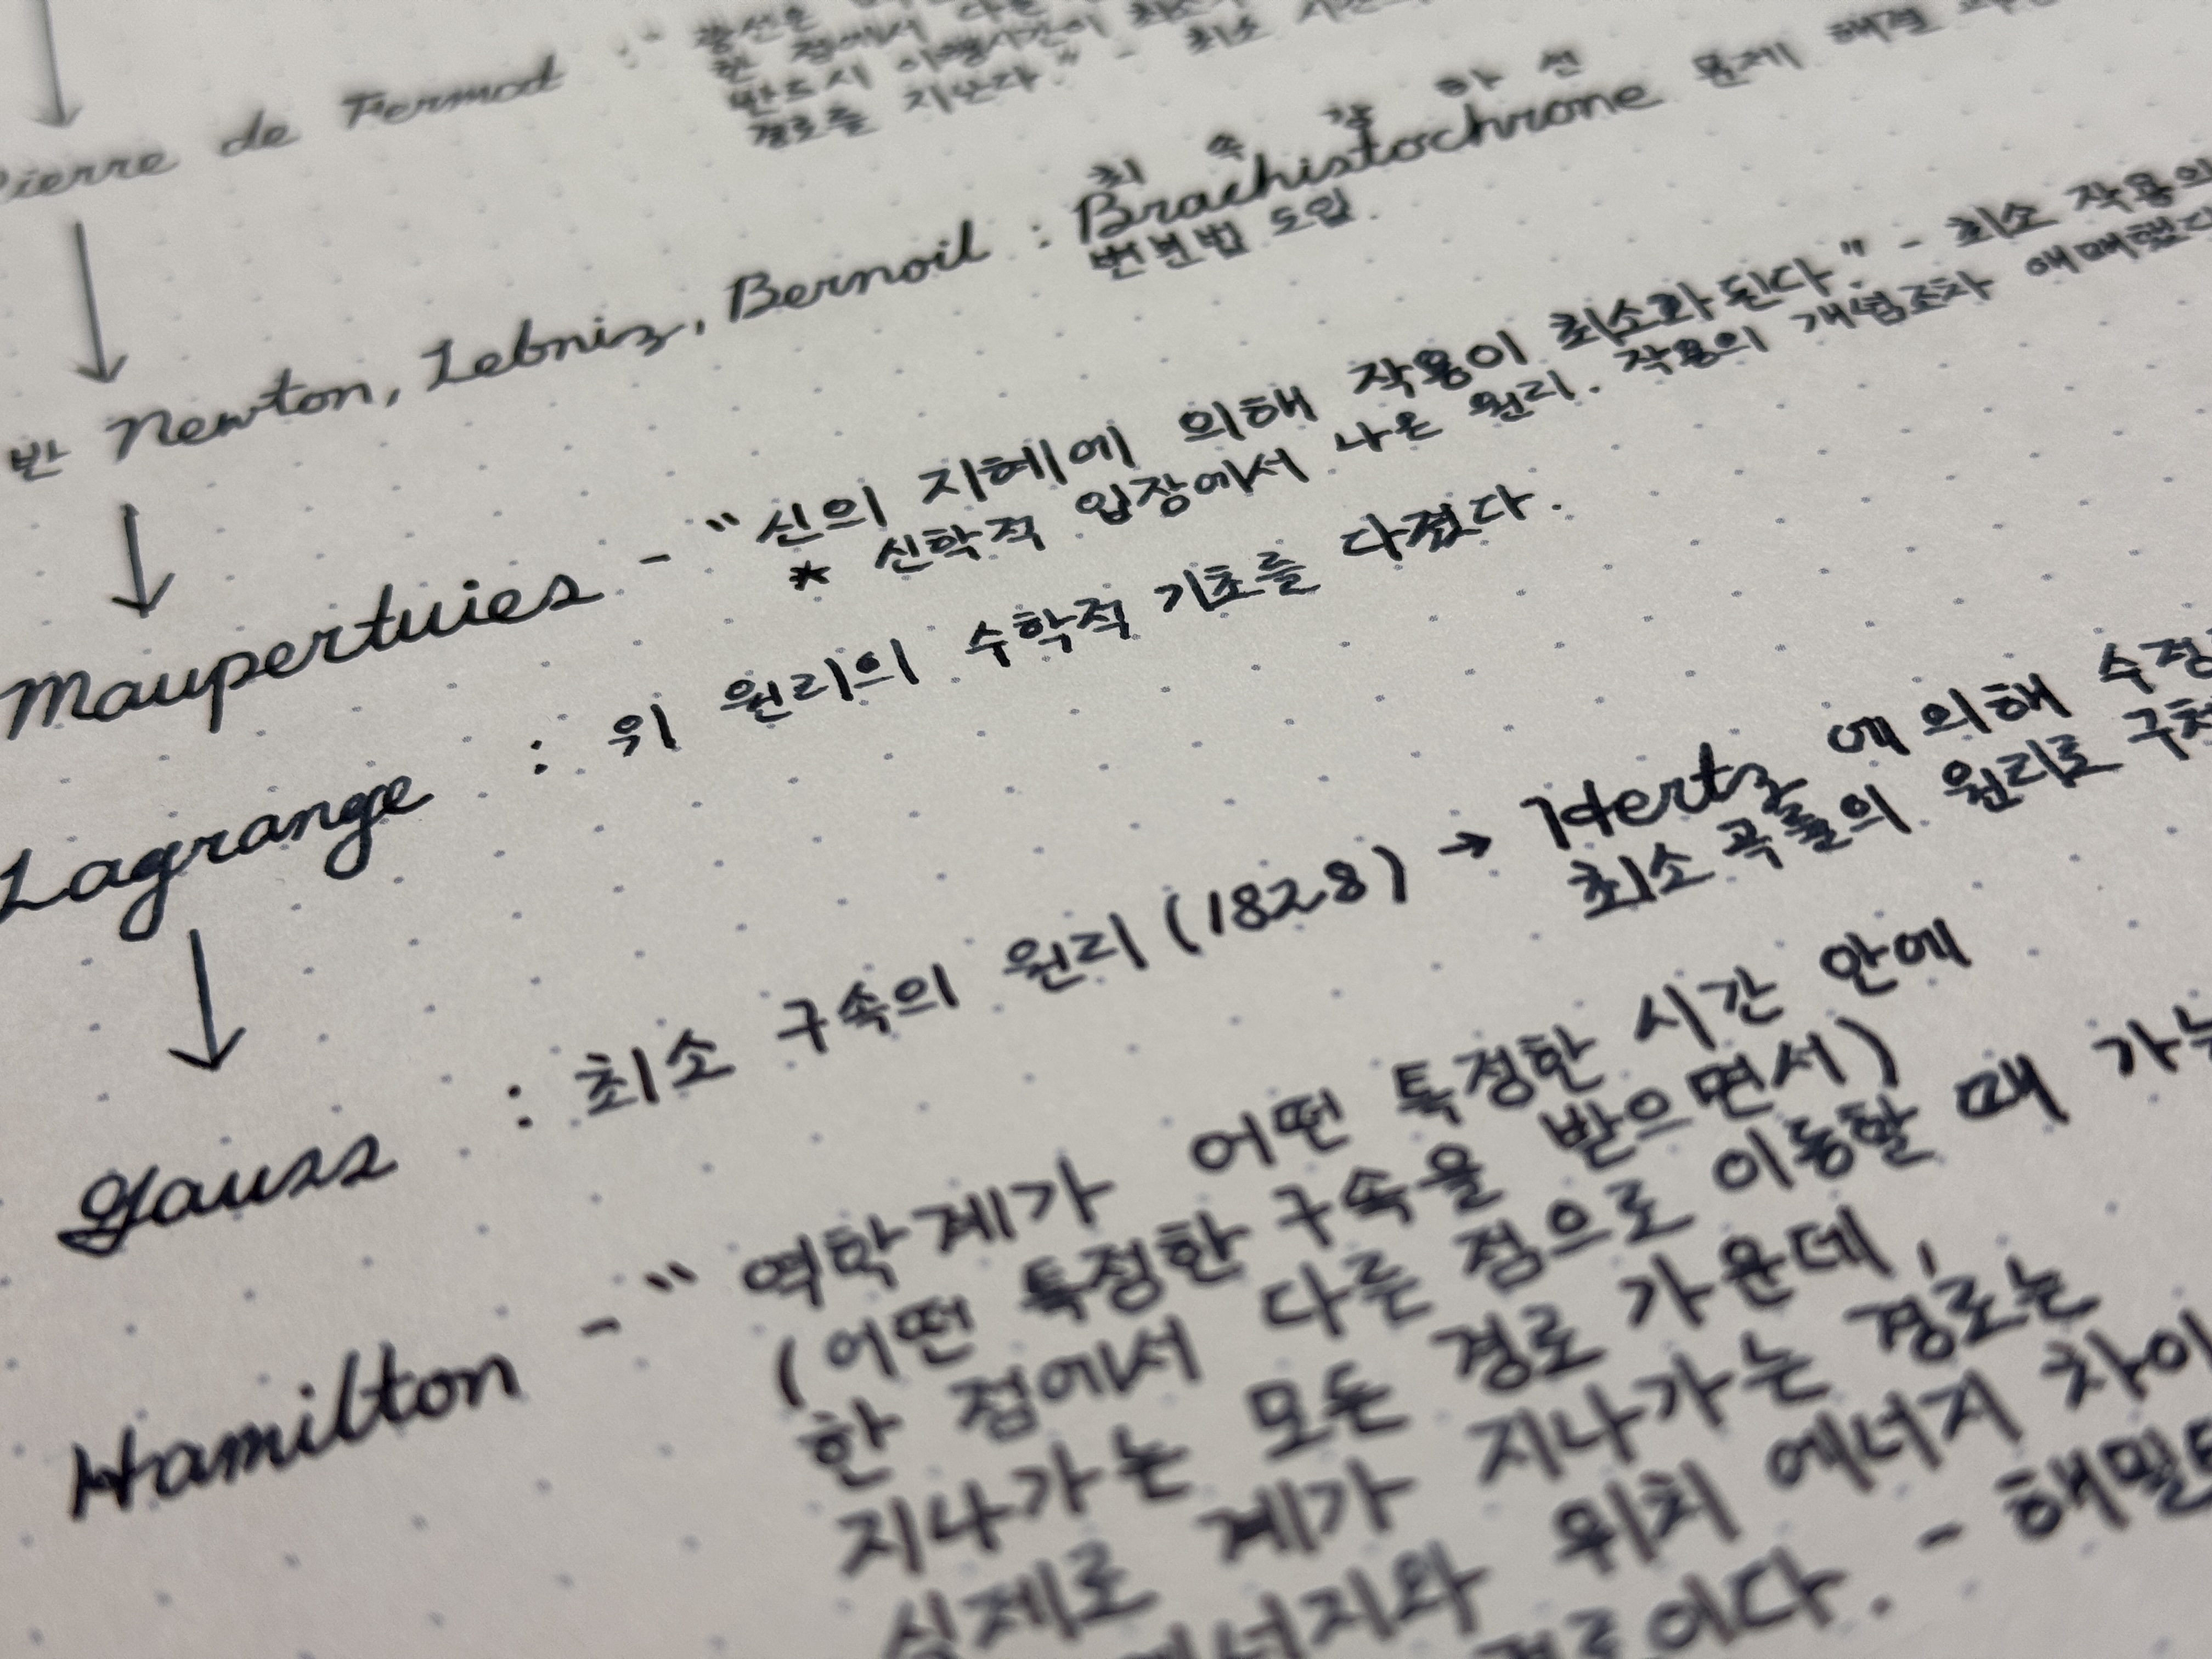 한 점에서 다른
Pierre de Fermat : " 반드시 이동시간이 최소
경로를 지난다." - 최소
최 속 강 하 선
반 Newton, Lebniz, Bernoil : Brachistochrone 문제 해결
변분법 도입.
Maupertuies - "신의 지혜에 의해 작용이 최소화된다." - 최소 작용의
* 신학적 입장에서 나온 원리. 작용의 개념조차 애매했다
Lagrange : 위 원리의 수학적 기초를 다졌다.
Gauss : 최소 구속의 원리 (1828) → Hertz 에 의해 수정
최소 곡률의 원리로
Hamilton - " 역학계가 어떤 특정한 시간 안에
(어떤 특정한 구속을 받으면서)
한 점에서 다른 점으로 이동할 때
지나가는 모든 경로 가운데,
실제로 계가 지나가는 경로는
에너지와 위치 에너지 차이
경로이다. - 해밀턴